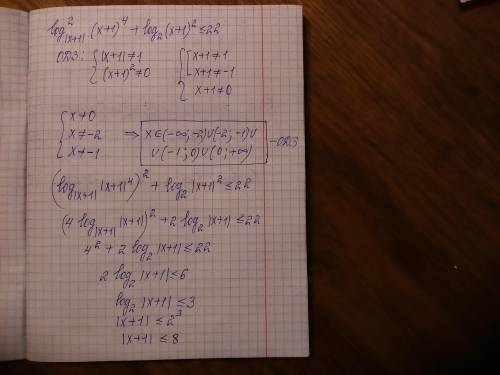 log²_|x+1| (x+1)⁴ + log₂(x+1)² ≤ 22
ОДЗ: { |x+1| ≠ 1 { [ x+1 ≠ 1
(x+1)² ≠ 0 x+1 ≠ -1
x+1 ≠ 0
{ x ≠ 0
x ≠ -2 ⇒ x∈(-∞;-2)∪(-2;-1)∪ - ОДЗ
x ≠ -1 ∪(-1;0)∪(0;+∞)
(log_|x+1| |x+1|⁴)² + log₂ |x+1|² ≤ 22
(4 log_|x+1| |x+1|)² + 2 log₂ |x+1| ≤ 22
4² + 2 log₂ |x+1| ≤ 22
2 log₂ |x+1| ≤ 6
log₂ |x+1| ≤ 3
|x+1| ≤ 2³
|x+1| ≤ 8